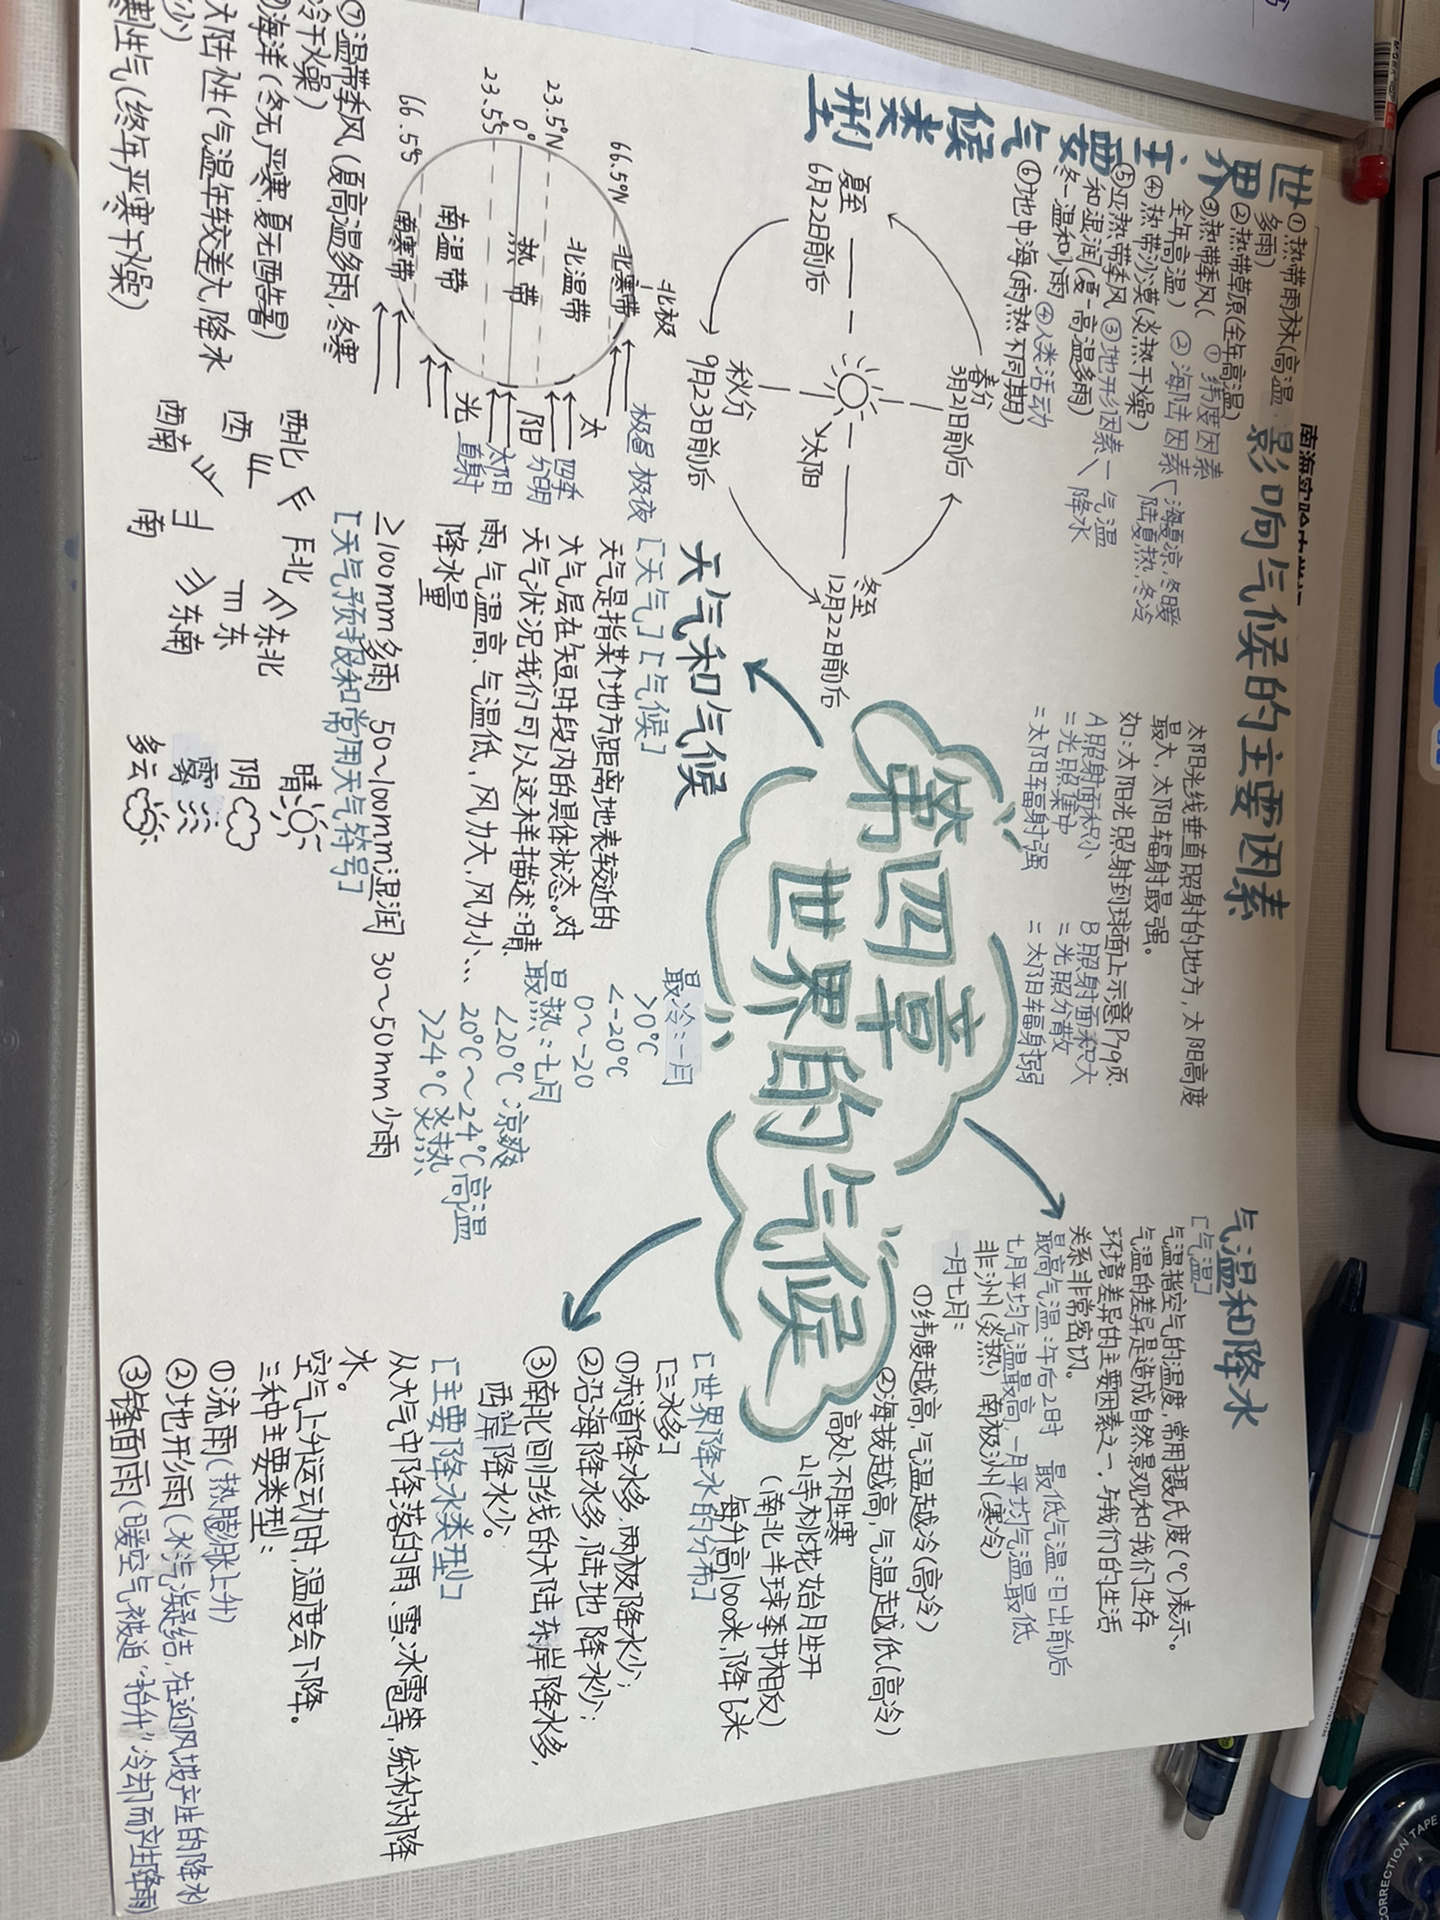 第四章
世界的气候
南海实验
影响气候的主要因素
① 纬度因素
② 海陆因素
海夏凉,冬暖
陆夏热,冬冷
③ 地形因素
气温
降水
④ 人类活动
太阳光线垂直照射的地方,太阳高度
最大,太阳辐射最强。
如:太阳光照射到球面上示意P79页
A照射面积小
=光照集中
=太阳辐射强
B照射面积大
=光照分散
=太阳辐射弱
世界主要气候类型
①热带雨林(高温
多雨)
②热带草原(全年高温)
③热带季风(
全年高温)
④热带沙漠(炎热干燥)
⑤亚热带季风
和湿润(夏-高温多雨)
冬-温和少雨
⑥地中海(雨,热不同期)
⑦温带季风(夏高温多雨,冬寒
冷干燥)
海洋(冬无严寒,夏无酷暑)
大陆性(气温年较差大,降水
少)
寒性气(终年严寒干燥)
夏至
6月22日前后
春分
3月21日前后
太阳
秋分
9月23日前后
冬至
12月22日前后
北极
66.5°N
23.5°N
0°
23.5°S
66.5°S
北寒带
北温带
热带
南温带
南寒带
极昼极夜
四季
分明
太阳
直射
太
阳
光
天气和气候
[天气][气候]
天气是指某个地方距离地表较近的
大气层在短时段内的具体状态。对
天气状况我们可以这样描述:晴、
雨、气温高、气温低,风力大,风力小…
降水量
≥100mm多雨 50~100mm湿润 30~50mm少雨
[天气预报和常用天气符号]
最冷:一月
>0°C
<-20°C
0~-20
最热:七月
<20°C 凉爽
20°C~24°C高温
>24°C炎热
西北
北
东北
西
东
西南
南
东南
晴
阴
雾
多云
气温和降水
[气温]
气温指空气的温度,常用摄氏度(°C)表示。
气温的差异是造成自然景观和我们生存
环境差异的主要因素之一,与我们的生活
关系非常密切。
最高气温:午后2时 最低气温:日出前后
七月平均气温最高,一月平均气温最低
非洲(炎热) 南极洲(寒冷)
一月七月:
①纬度越高,气温越冷(高冷)
②海拔越高,气温越低(高冷)
高处不胜寒
山寺桃花始月生开
(南北半球季节相反)
每升高1000米,降6米
[世界降水的分布]
[三水多]
①赤道降水多,两极降水少;
②沿海降水多,陆地降水少;
③南北回归线的大陆东岸降水多,
西岸降水少。
[主要降水类型]
从大气中降落的雨、雪、冰雹等,统称为降
水。
空气上升运动时,温度会下降。
三种主要类型:
①流雨(热膨胀上升)
②地形雨(水汽凝结,在迎风坡产生的降水
③锋面雨(暖空气被迫"抬升"冷却而产生降雨
CORRECTION TAPE